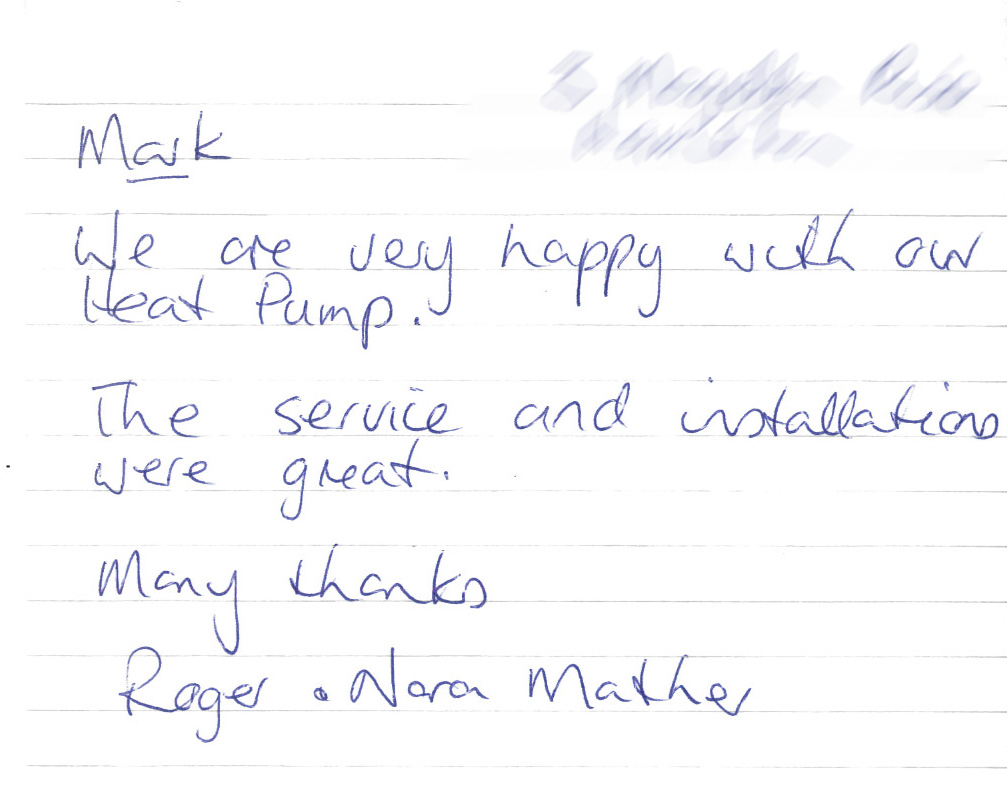 Mark
We are very happy with our
Heat Pump.
The service and installations
were great.
Many thanks
Roger . Nora Mather